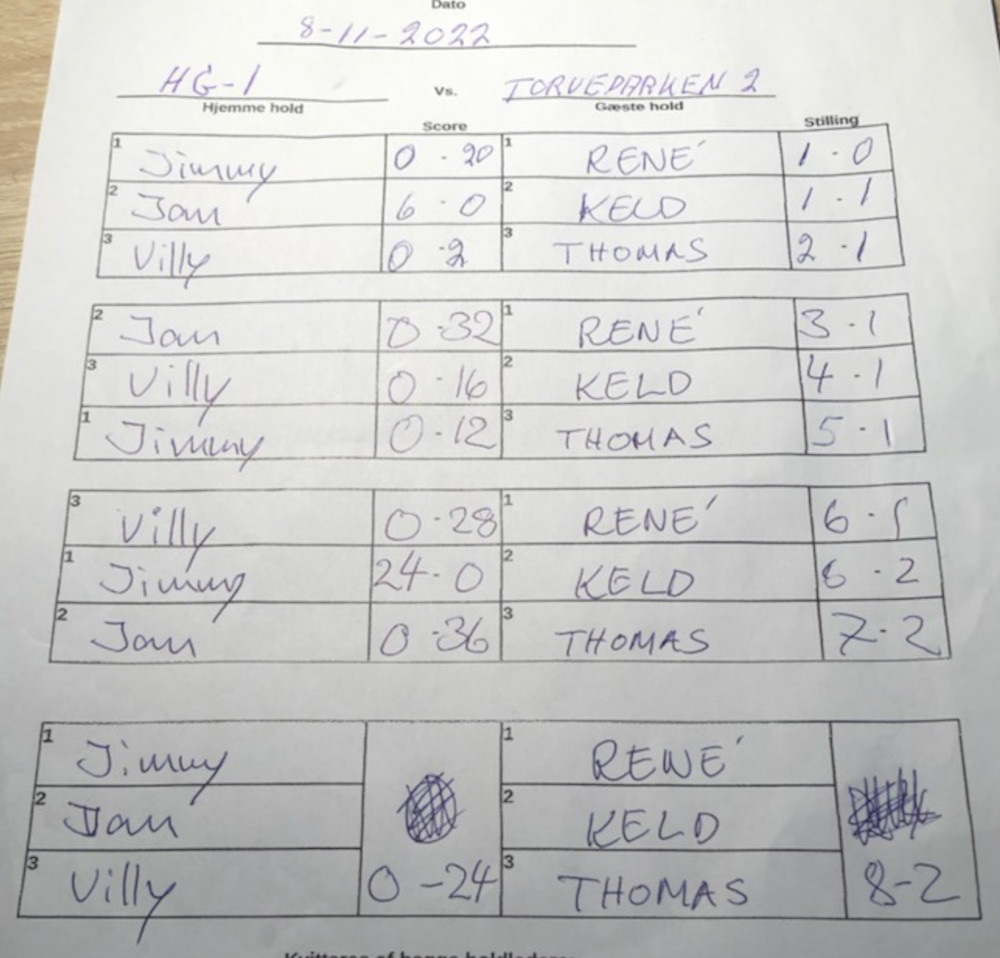 Dato
8-11-2022
HG-1 Vs. TORVEPARKEN 2
Hjemme hold Gæste hold
Score Stilling
1 Jimmy 0 - 20 1 RENÉ 1 - 0
2 Jan 6 - 0 2 KELD 1 - 1
3 Villy 0 - 2 3 THOMAS 2 - 1
2 Jan 0 - 32 1 RENÉ 3 - 1
3 Villy 0 - 16 2 KELD 4 - 1
1 Jimmy 0 - 12 3 THOMAS 5 - 1
3 Villy 0 - 28 1 RENÉ 6 - 1
1 Jimmy 24 - 0 2 KELD 6 - 2
2 Jan 0 - 36 3 THOMAS 7 - 2
1 Jimmy 1 RENÉ
2 Jan 2 KELD
3 Villy 0 - 24 3 THOMAS 8 - 2